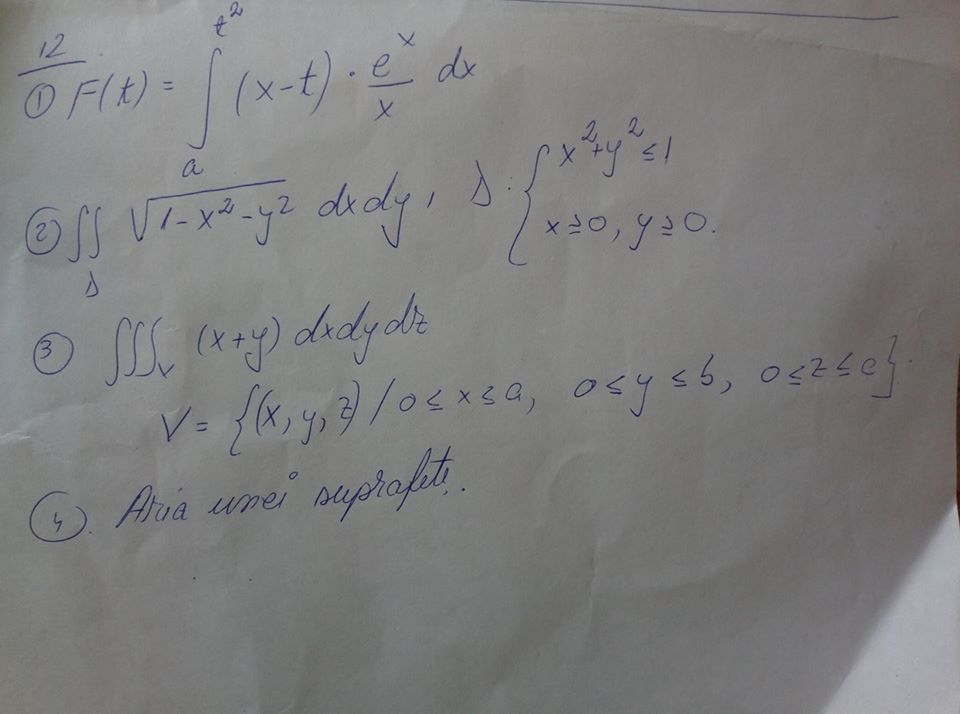 12
① F(t) = ∫_a^{t²} (x-t) · e^x/x dx
② ∬_D √(1-x²-y²) dxdy, D: { x²+y² ≤ 1
x ≥ 0, y ≥ 0.
③ ∭_V (x+y) dxdydz
V = {(x, y, z) / 0 ≤ x ≤ a, 0 ≤ y ≤ b, 0 ≤ z ≤ c}.
④. Aria unei suprafețe.